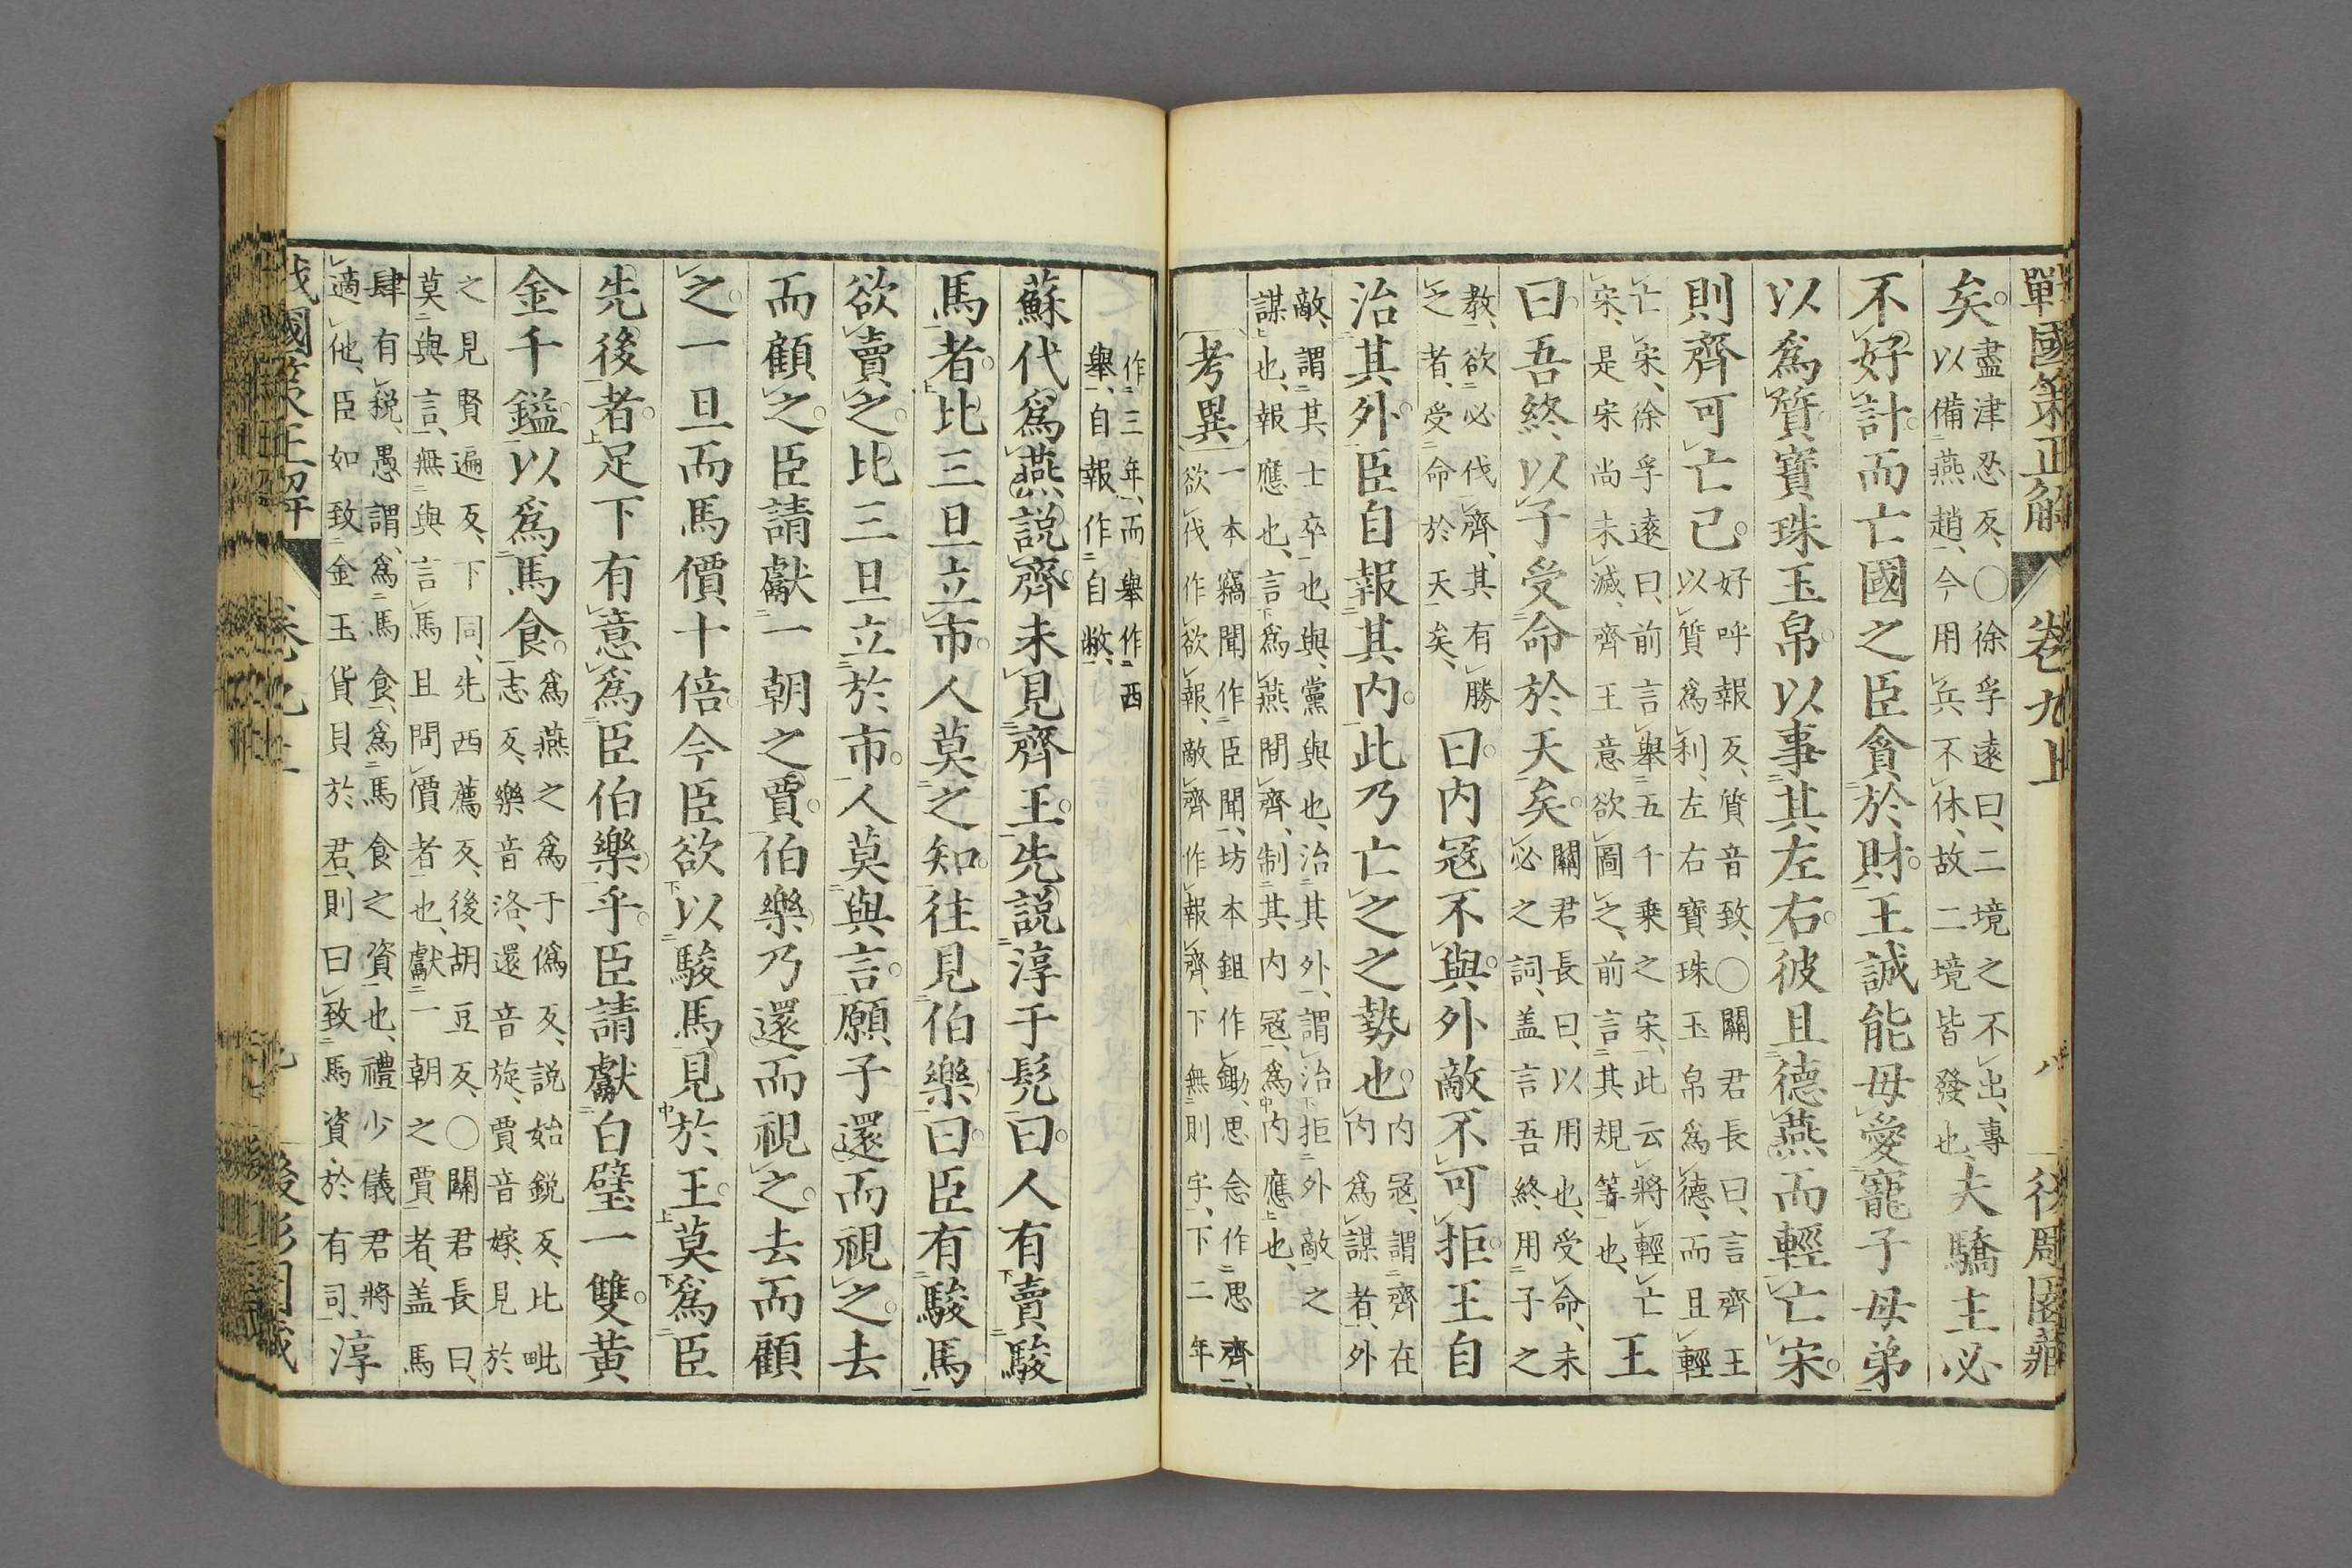 戰國策正解 卷九上 八 後凋園藏
矣。盡津忍反、〇徐孚遠曰、二境之不出、專
以備燕趙、今用兵不休、故二境皆發也、夫驕主必
不好計。而亡國之臣貪於財。王誠能毋愛寵子母弟
以爲質寶珠玉帛。以事其左右。彼且德燕而輕亡宋。
則齊可亡已。好呼報反、質音致、〇關君長曰、言齊王
以質爲利、左右寶珠玉帛爲德、而且輕
亡宋、徐孚遠曰、前言舉五千乘之宋、此云將輕亡
宋、是宋尚未滅、齊王意欲圖之、前言其規等也、王
曰。吾終以子受命於天矣。關君長曰、以用也、受命、未
必之詞、蓋言吾終用子之
教、欲必伐齊、其有勝
之者、受命於天矣、曰。内冦不與。外敵不可拒。王自
治其外。臣自報其内。此乃亡之之勢也。内冦、謂齊在
内爲謀者、外
敵、謂其士卒也、與、黨與也、治其外、謂治拒外敵之
謀也、報應也、言爲燕間齊、制其内冦、爲内應也、
考異 一本竊聞作臣聞、坊本鉏作鋤、思念作思齊、
欲伐作欲報、敵齊作報齊、下無則字、下二年
作三年、而舉作西
舉、自報作自敝、
蘇代爲燕說齊。未見齊王。先說淳于髡曰。人有賣駿
馬者。比三旦立市。人莫之知。往見伯樂曰。臣有駿馬
欲賣之。比三旦立於市。人莫與言。願子還而視之。去
而顧之。臣請獻一朝之賈。伯樂乃還而視之。去而顧
之。一旦而馬價十倍。今臣欲以駿馬見於王。莫爲臣
先後者。足下有意爲臣伯樂乎。臣請獻白璧一雙。黄
金千鎰。以爲馬食。爲燕之爲于僞反、說始銳反、比毗
志反、樂音洛、還音旋、賈音嫁、見於
之見賢遍反、下同、先西薦反、後胡豆反、〇關君長曰、
莫與言、無與言馬且問價者也、獻一朝之賈者、蓋馬
肆有稅、愚謂、爲馬食、爲馬食之資也、禮少儀君將
適他、臣如致金玉貨貝於君、則曰致馬資於有司、淳